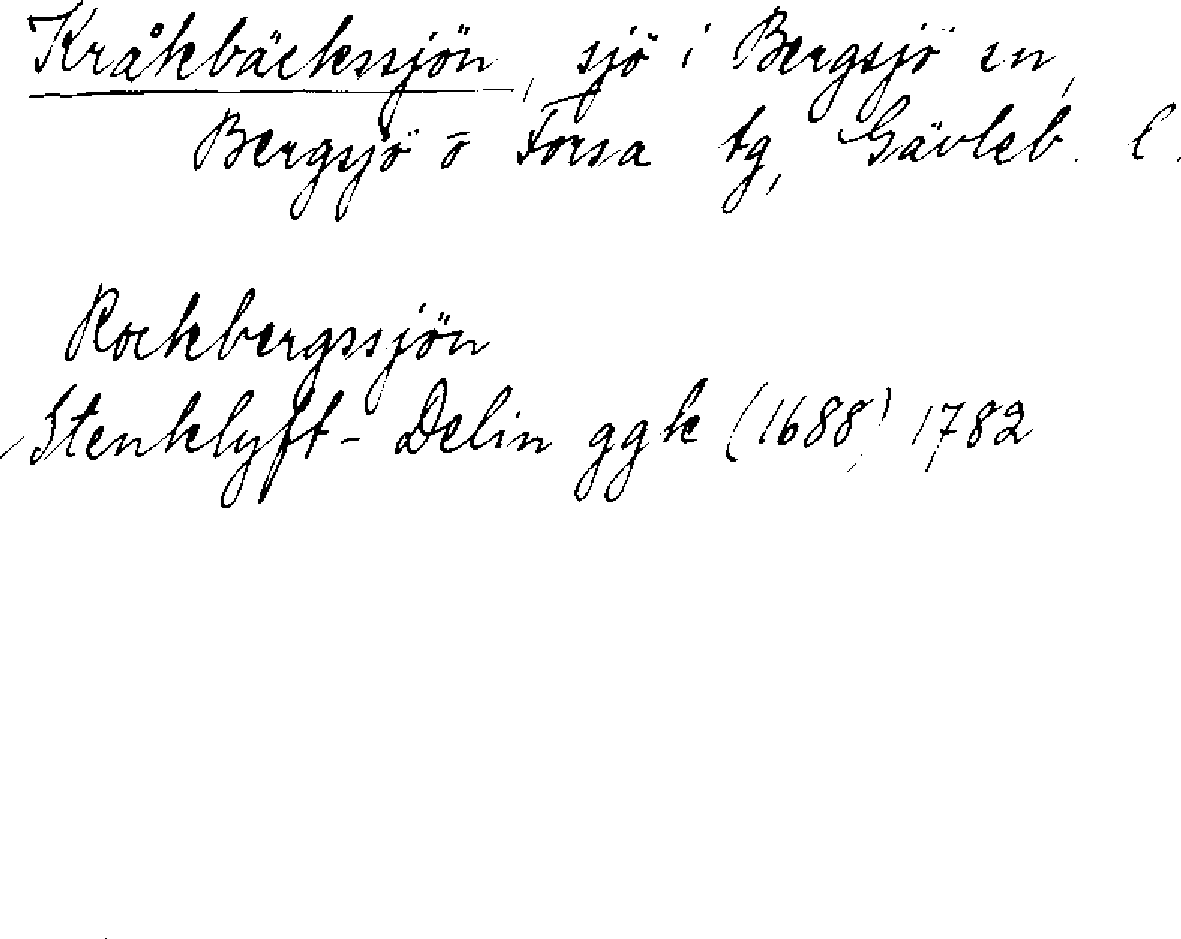 Kråkbäckssjön, sjö i Bergsjö sn,
Bergsjö o Forsa tg, Gävleb. l.
Rockbergssjön
Stenklyft- Delin ggk (1688) 1782